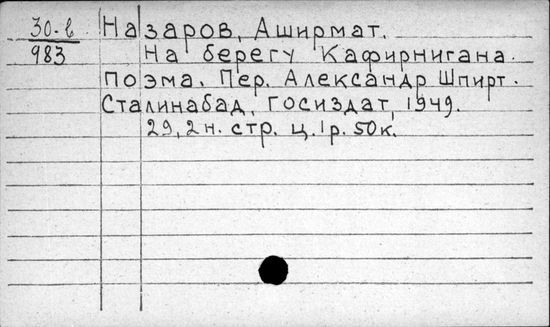 30-6 Назаров, Аширмат.
983 На берегу Кафирнигана.
Поэма. Пер. Александр Шпирт.
Сталинабад, Госиздат, 1949.
29, 2н. стр. ц. 1р. 50к.